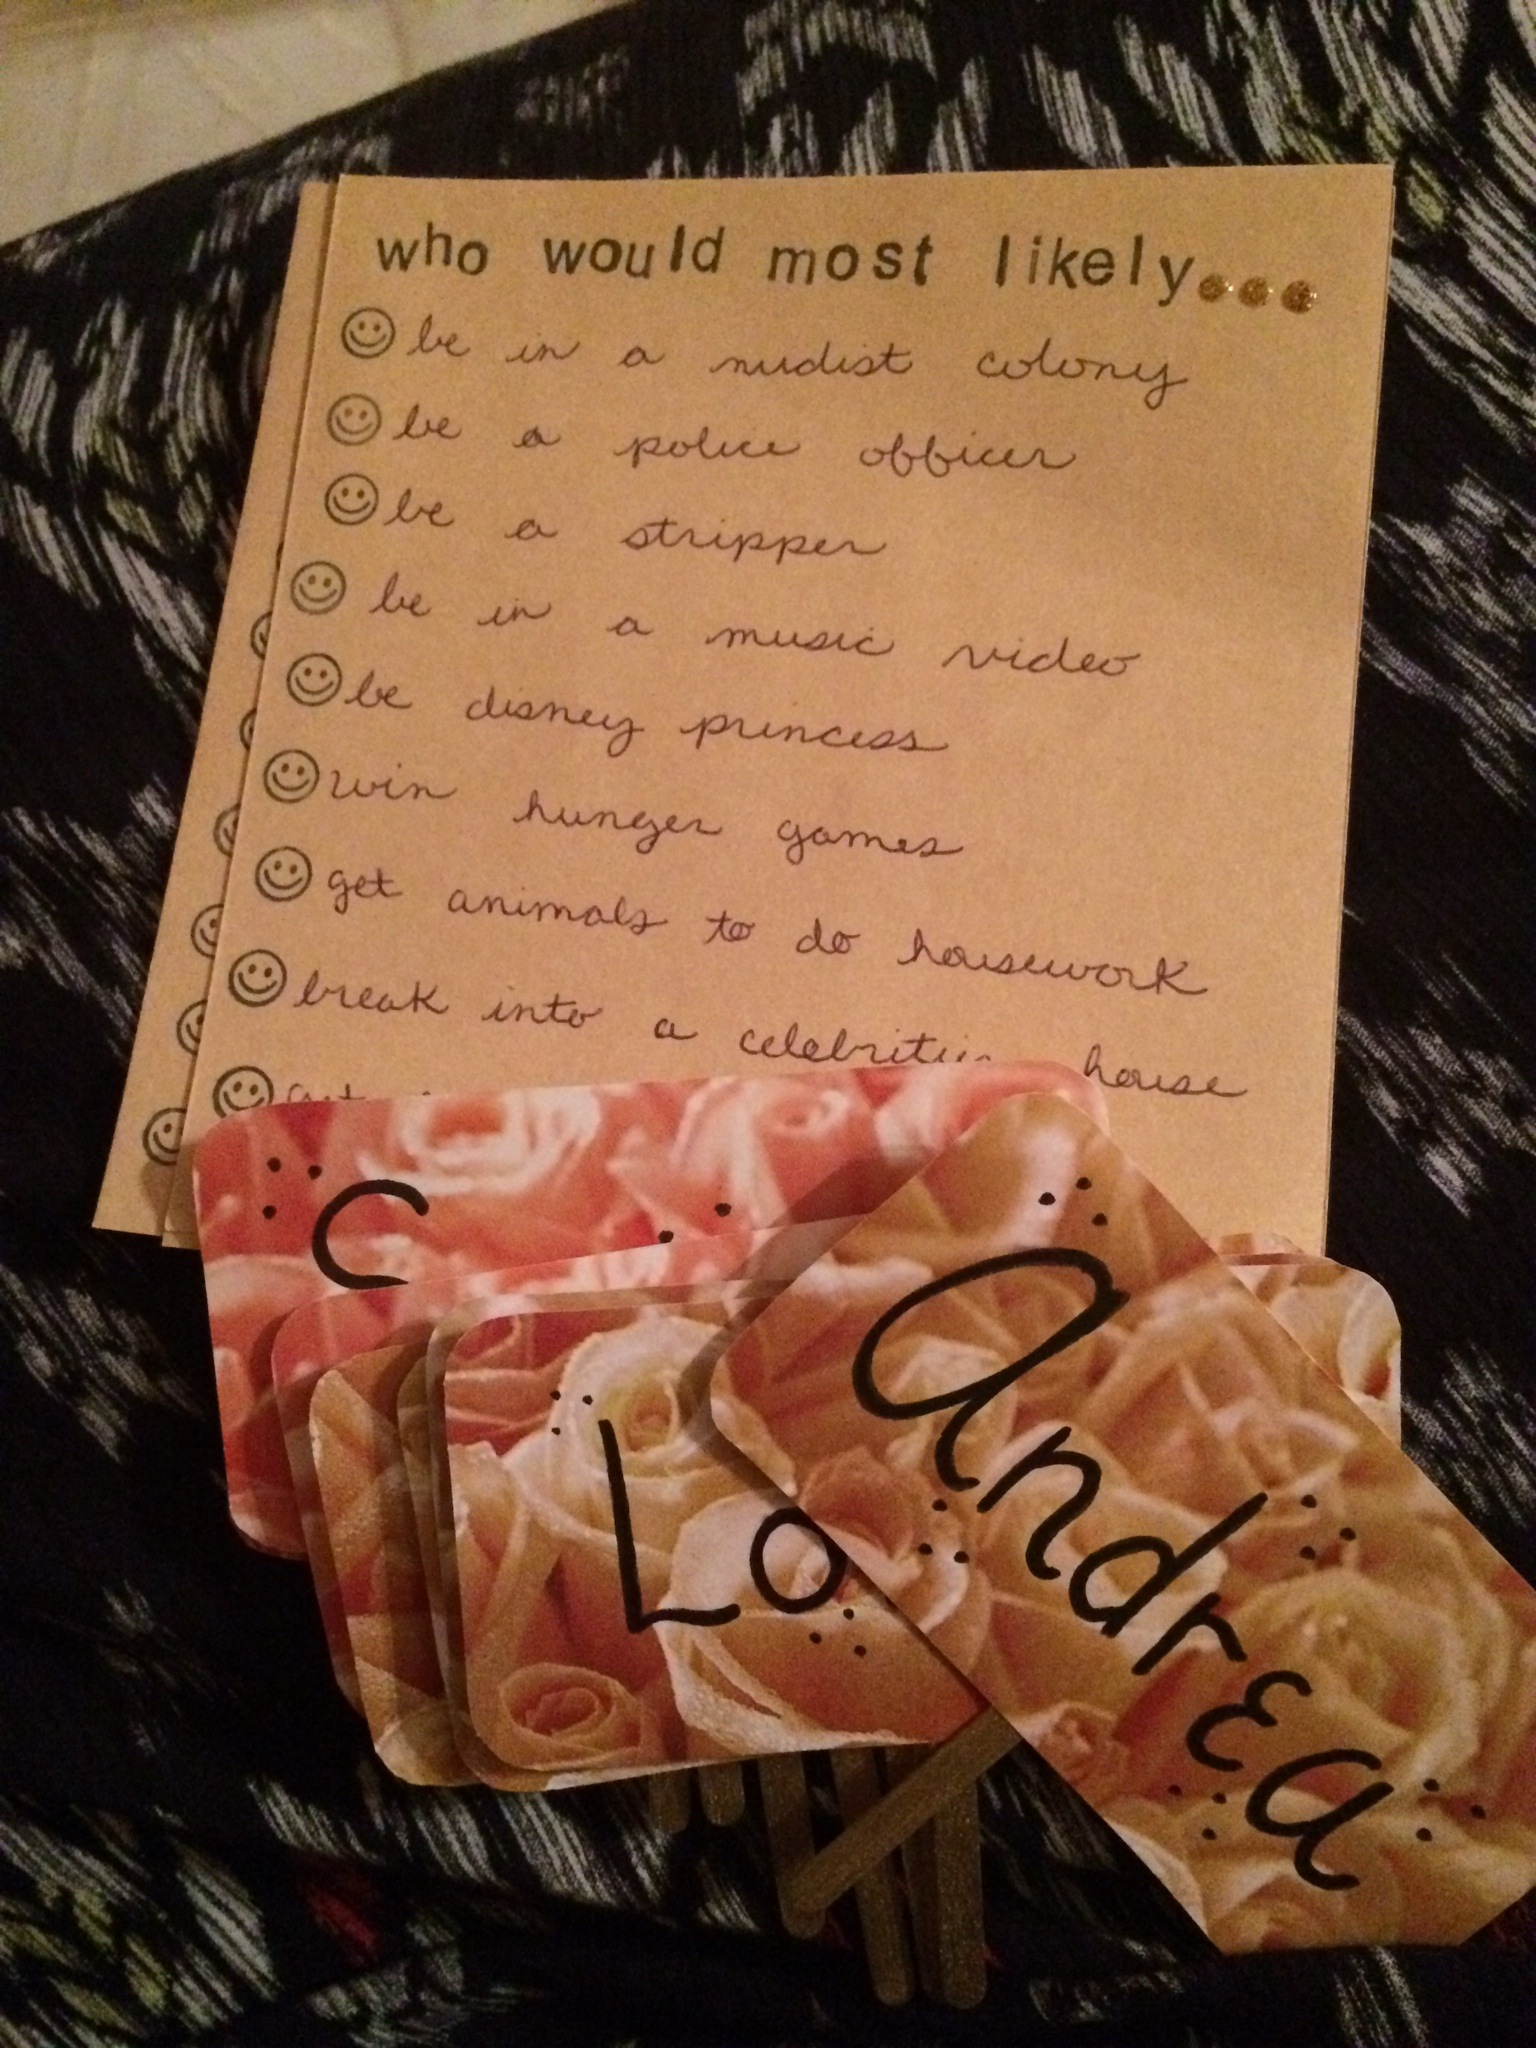 who would most likely...
be in a nudist colony
be a police officer
be a stripper
be in a music video
be disney princess
win hunger games
get animals to do housework
break into a house
C
Lo
Andrea